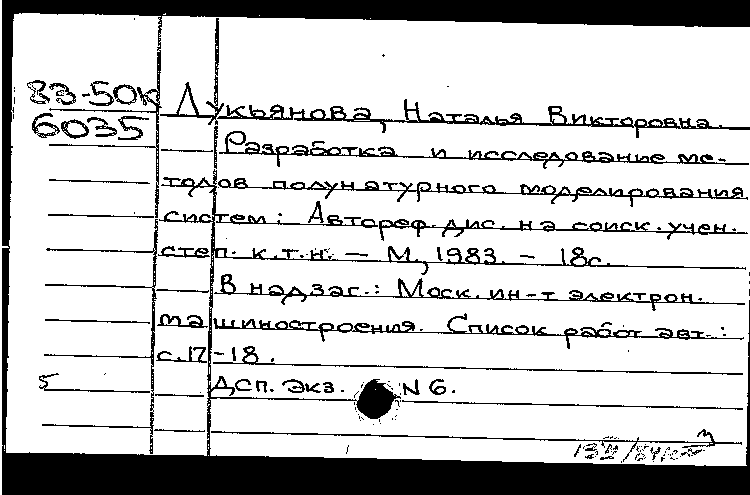 83-50К Лукьянова, Наталья Викторовна.
6035
Разработка и исследование ме-
тодов полунатурного моделирования
систем: Автореф. дис. на соиск. учен.
степ. к.т.н. – М., 1983. – 18с.
В надзаг.: Моск. ин-т электрон.
машиностроения. Список работ авт.:
с.17-18.
5 ДСП. Экз. N 6.